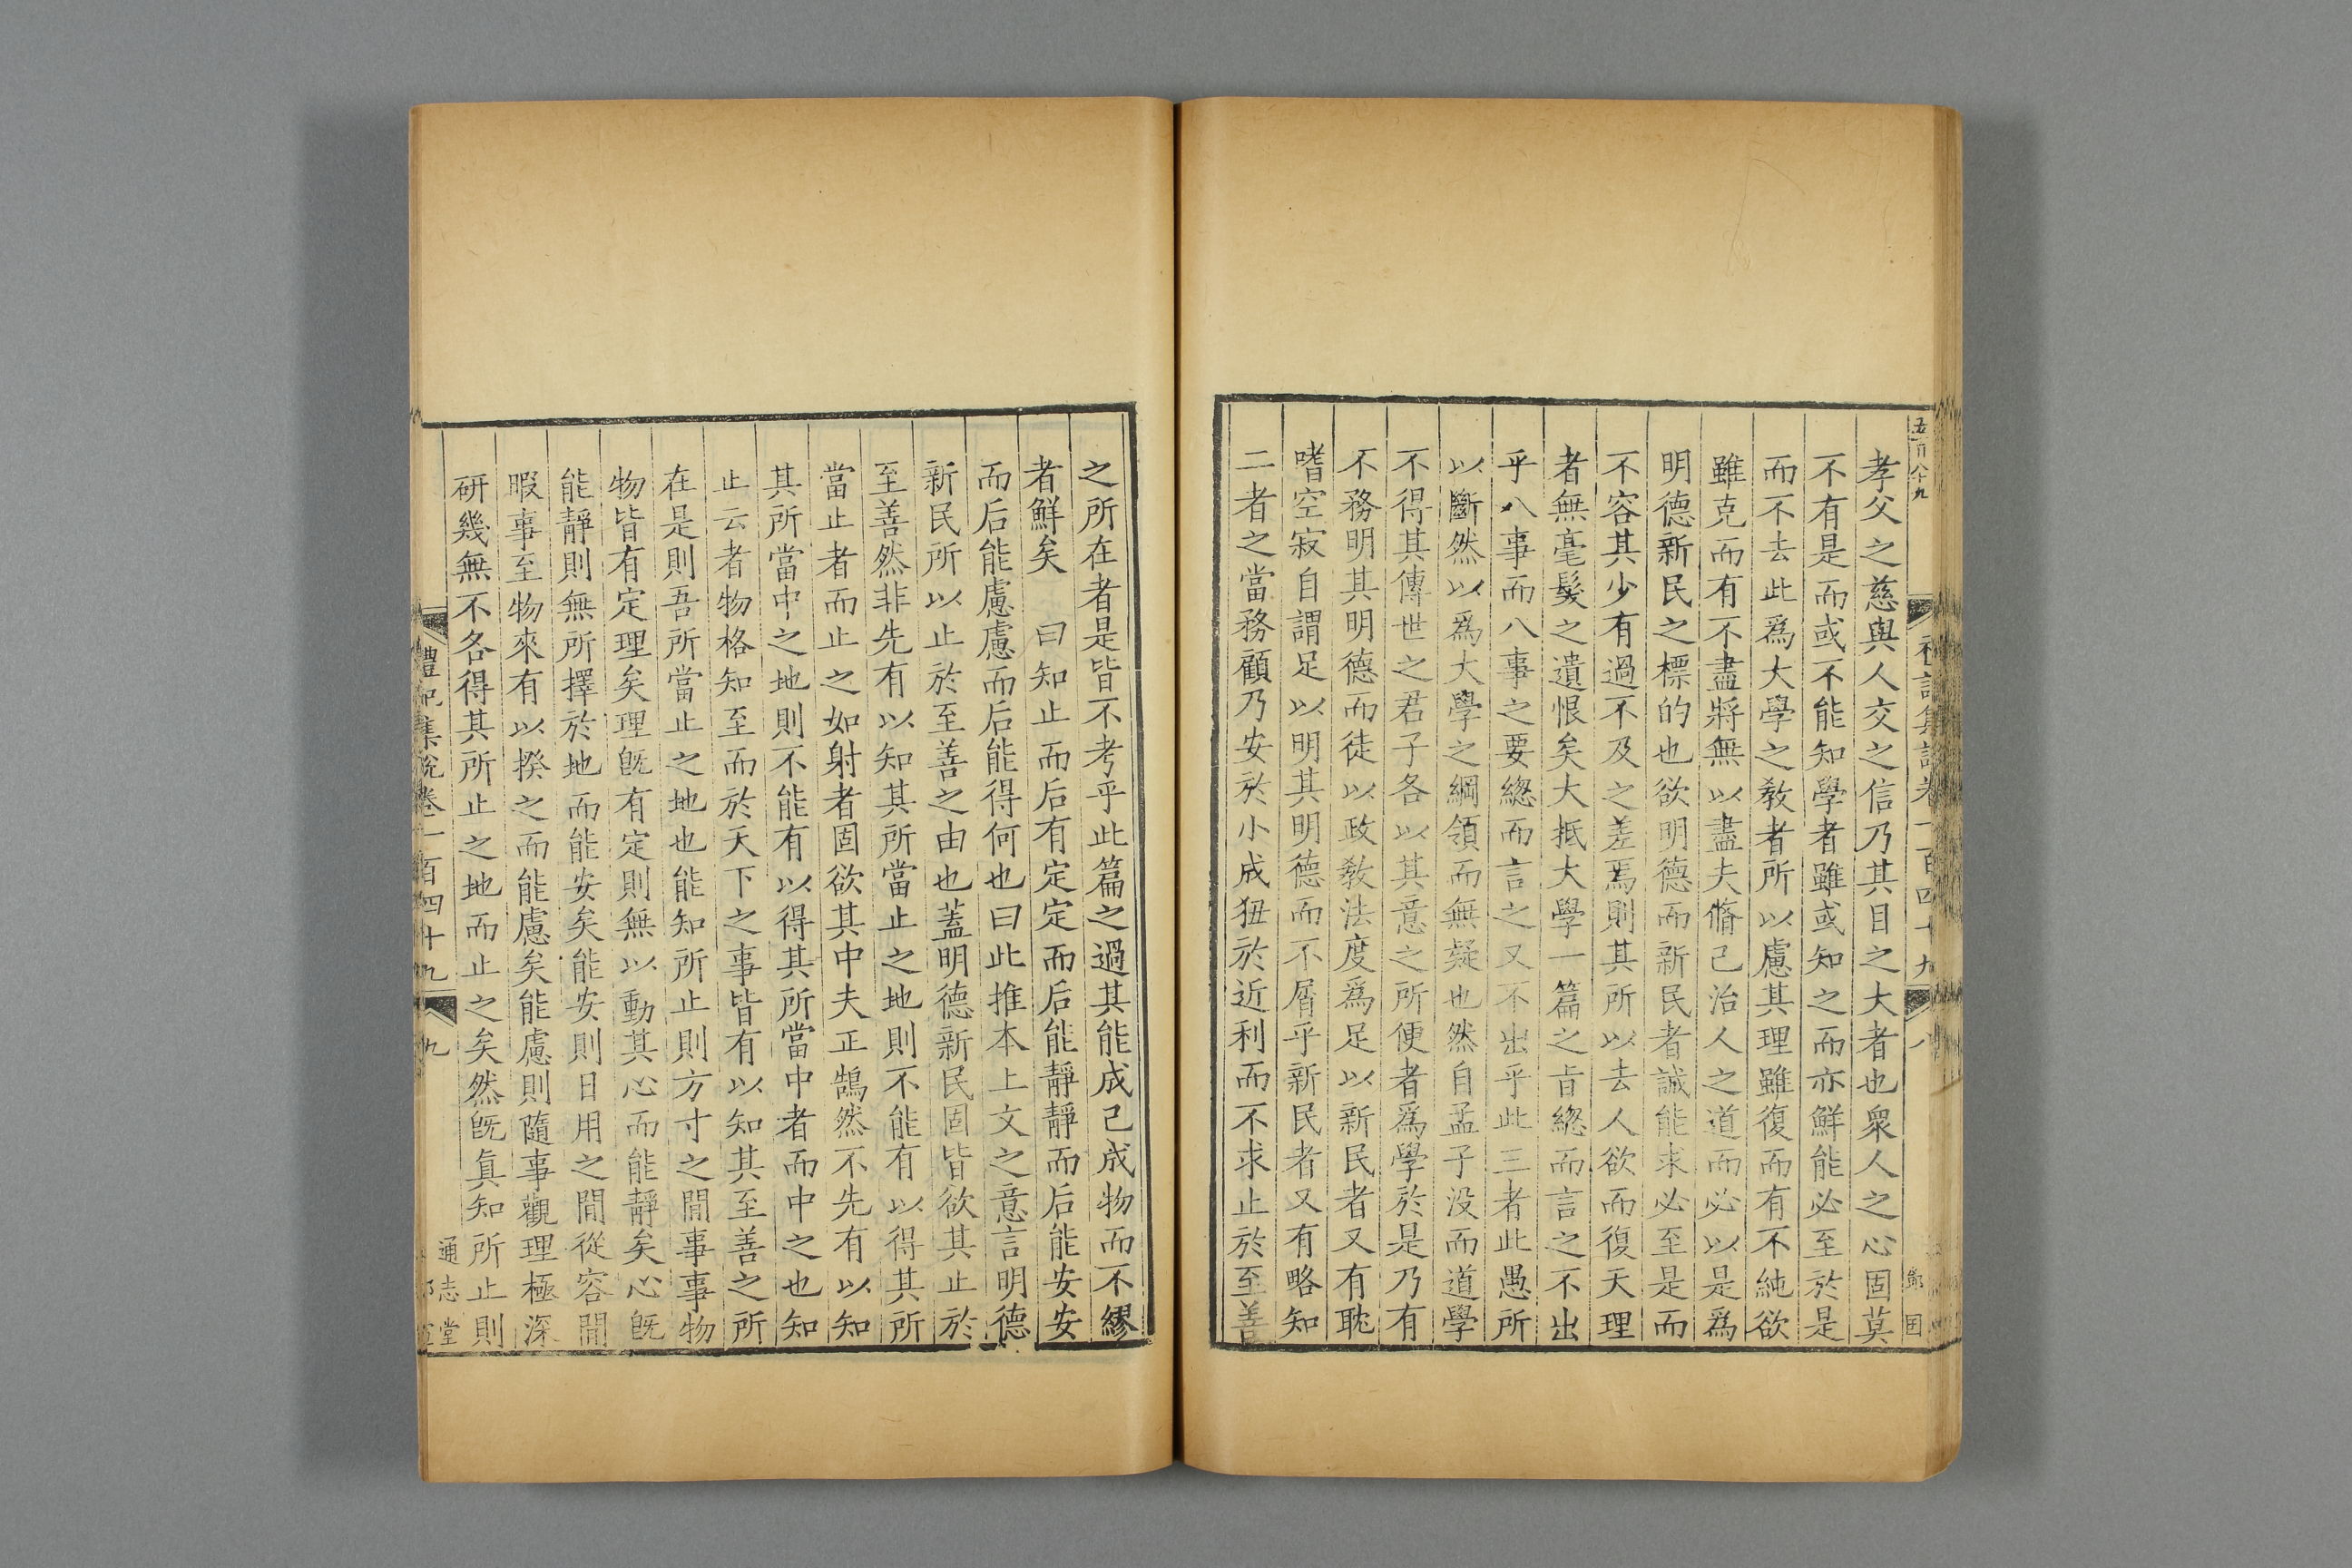 五百八十九
禮記集說卷一百四十九
八
孝父之慈與人交之信乃其目之大者也衆人之心固莫
不有是而或不能知學者雖或知之而亦鮮能必至於是
而不去此爲大學之敎者所以慮其理雖復而有不純欲
雖克而有不盡將無以盡夫脩己治人之道而必以是爲
明德新民之標的也欲明德而新民者誠能求必至是而
不容其少有過不及之差焉則其所以去人欲而復天理
者無毫髮之遺恨矣大抵大學一篇之㫖緫而言之不出
乎八事而八事之要緫而言之又不出乎此三者此愚所
以斷然以爲大學之綱領而無疑也然自孟子没而道學
不得其傳世之君子各以其意之所便者爲學於是乃有
不務明其明德而徒以政敎法度爲足以新民者又有
嗜空寂自謂足以明其明德而不屑乎新民者又有略知
二者之當務顧乃安於小成狃於近利而不求止於至善
之所在者是皆不考乎此篇之過其能成己成物而不繆
者鮮矣　曰知止而后有定定而后能靜靜而后能安安
而后能慮慮而后能得何也曰此推本上文之意言明德
新民所以止於至善之由也蓋明德新民固皆欲其止於
至善然非先有以知其所當止之地則不能有以得其所
當止者而止之如射者固欲其中夫正鵠然不先有以知
其所當中之地則不能有以得其所當中者而中之也知
止云者物格知至而於天下之事皆有以知其至善之所
在是則吾所當止之地也能知所止則方寸之閒事事物
物皆有定理矣理旣有定則無以動其心而能靜矣心旣
能靜則無所擇於地而能安矣能安則日用之閒從容閒
暇事至物來有以揆之而能慮矣能慮則隨事觀理極深
研幾無不各得其所止之地而止之矣然旣眞知所止則
禮記集說卷一百四十九
九
通志堂